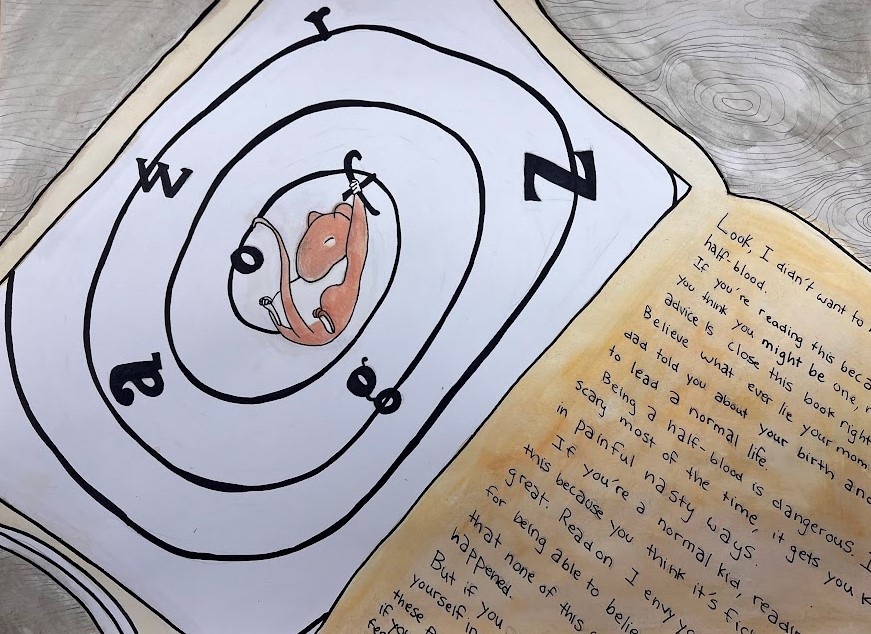 r
w
Z
f
o
a
g
o
Look, I didn't want to
half-blood.
If you're reading this beca
you think you might be one,
advice is close this book right
Believe what ever lie your mom
dad told you about your birth and
to lead a normal life.
Being a half-blood is dangerous. I
scary most of the time, it gets you k
in painful nasty ways.
If you're a normal kid, readin
this because you think it's fic
great. Read on I envy yo
for being able to belie
that none of this
happened.
But if you
yourself in
these
if you